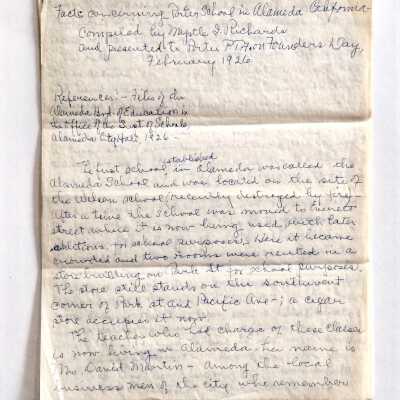 Facts concerning Porter School in Alameda California-
Compiled by Myrtle I. Richards
and presented to Porter P.T.A. on Founders Day,
February 1926.
References:- Files of the
Alameda Brd. of Education in
the Office of the Supt of Schools,
Alameda City Hall, 1926-
established
The first school in Alameda was called the
Alameda School and was located on the site of
the Wilson School, recently destroyed by fire.
After a time the School was moved to
street where it is now being used with later
additions, for school purposes. Here it became
crowded and two rooms were rented in a
store building on Park St for school purposes.
The store still stands on the southwest
corner of Park st and Pacific Ave-; a cigar
store occupies it now.
The teacher who had charge of these classes
is now living in Alameda, her name is
Mrs. David Martin- Among the local
business men of the city who remember